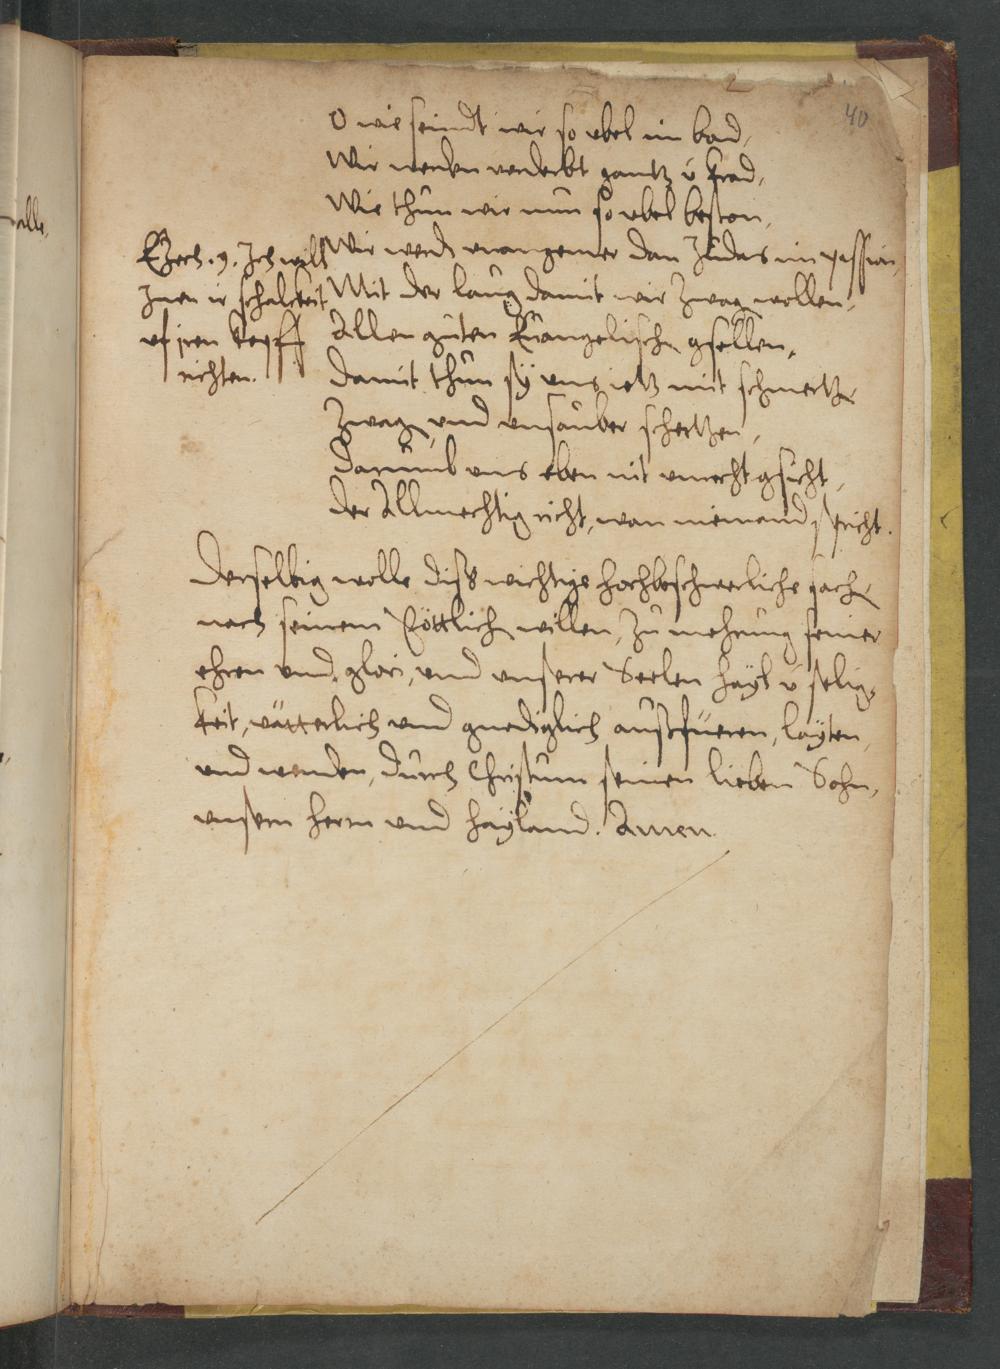 40
O wie seindt wir so vbel im bad,
Wir werden verderbt gantz v̄ grad,
Wie thun wir nun so vbel beston,
Wir werdē vnangemer dan Judas im passion,
Mit der laug damit wir zwagē wollen,
Allen guten Euangelischē gsellen,
Damit thun sÿ vns ietz mit schmertzē
Zwagē vnd vnsauber schertzen,
Darumb vns eben nit vnrecht gsicht,
Der Allmechtig richt, wan niemand spricht.
Ezech. 9. Ich will
jnen ir schalckeit
vf jren kopff
richten.
Derselbig wolle diss wichtige hochbeschwerliche sachē
nach seinem Göttlichē willen, zu mehrung seiner
ehren vnd glori, vnd vnserer Seelen haÿl v̄ selig-
keit, vätterlich vnd gnediglich aussfüeren, laÿten,
vnd wenden, durch Christum seinen lieben Sohn,
vnsern herrn vnd haÿland. Amen.